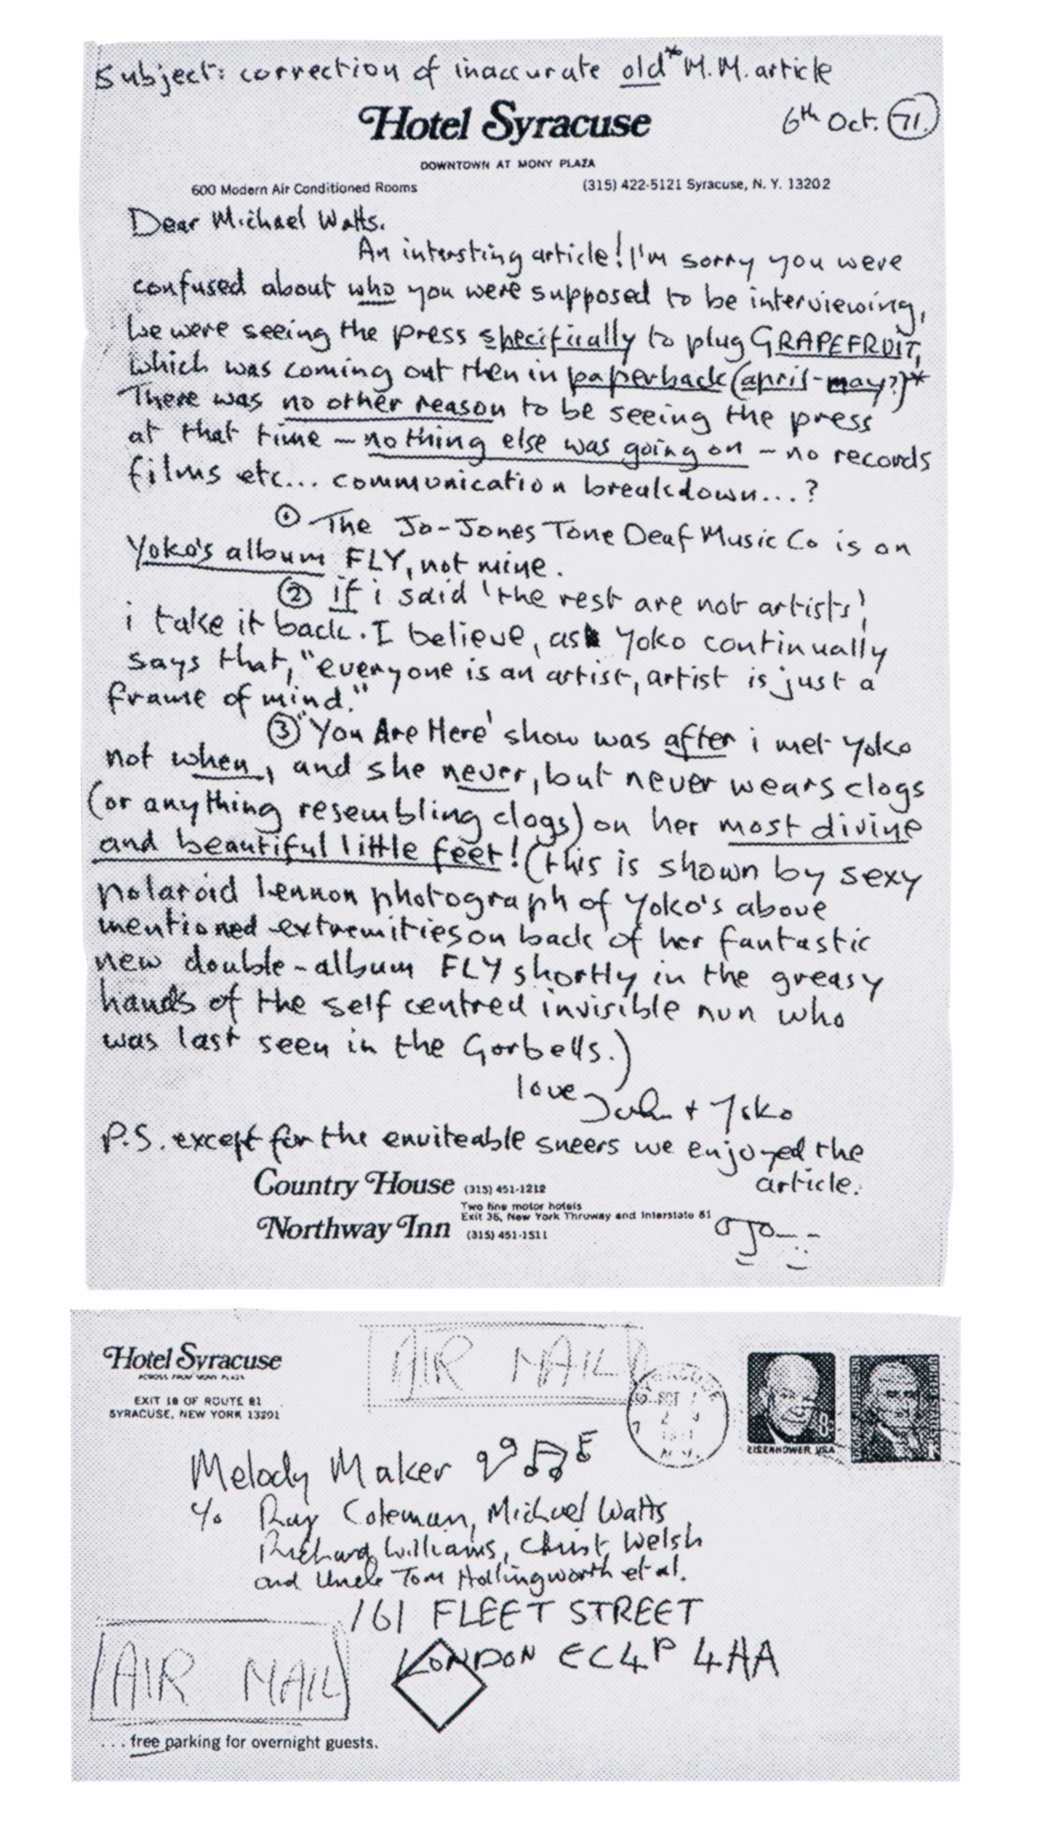 Subject: correction of inaccurate old* M.M. article
Hotel Syracuse
6th Oct. 71.
DOWNTOWN AT MONY PLAZA
600 Modern Air Conditioned Rooms
(315) 422-5121 Syracuse, N. Y. 13202
Dear Michael Watts.
An intersting article! I'm sorry you were
confused about who you were supposed to be interviewing,
we were seeing the press specifically to plug GRAPEFRUIT,
which was coming out then in paperback (april-may?)*
There was no other reason to be seeing the press
at that time – nothing else was going on – no records
films etc... communication breakdown...?
① The Jo-Jones Tone Deaf Music Co is on
Yoko's album FLY, not mine.
② If i said 'the rest are not artists'
i take it back. I believe, as Yoko continually
says that, "everyone is an artist, artist is just a
frame of mind."
③ 'You Are Here' show was after i met Yoko
not when, and she never, but never wears clogs
(or anything resembling clogs) on her most divine
and beautiful little feet! (this is shown by sexy
polaroid Lennon photograph of Yoko's above
mentioned extremities on back of her fantastic
new double-album FLY shortly in the greasy
hands of the self centred invisible nun who
was last seen in the Gorbells.)
love John + Yoko
P.S. except for the enviteable sneers we enjoyed the
article.
Country House (315) 451-1212
Two fine motor hotels
Exit 36, New York Thruway and Interstate 81
Northway Inn (315) 451-1511
Hotel Syracuse
ACROSS FROM MONY PLAZA
EXIT 18 OF ROUTE 81
SYRACUSE, NEW YORK 13201
AIR MAIL
SYRACUSE
OCT
1971
N.Y.
8¢
EISENHOWER USA
Melody Maker
c/o Ray Coleman, Michael Watts,
Richard Williams, Christ Welsh
and Uncle Tom Hollingworth et al.
161 FLEET STREET
LONDON EC4P 4HA
AIR MAIL
... free parking for overnight guests.